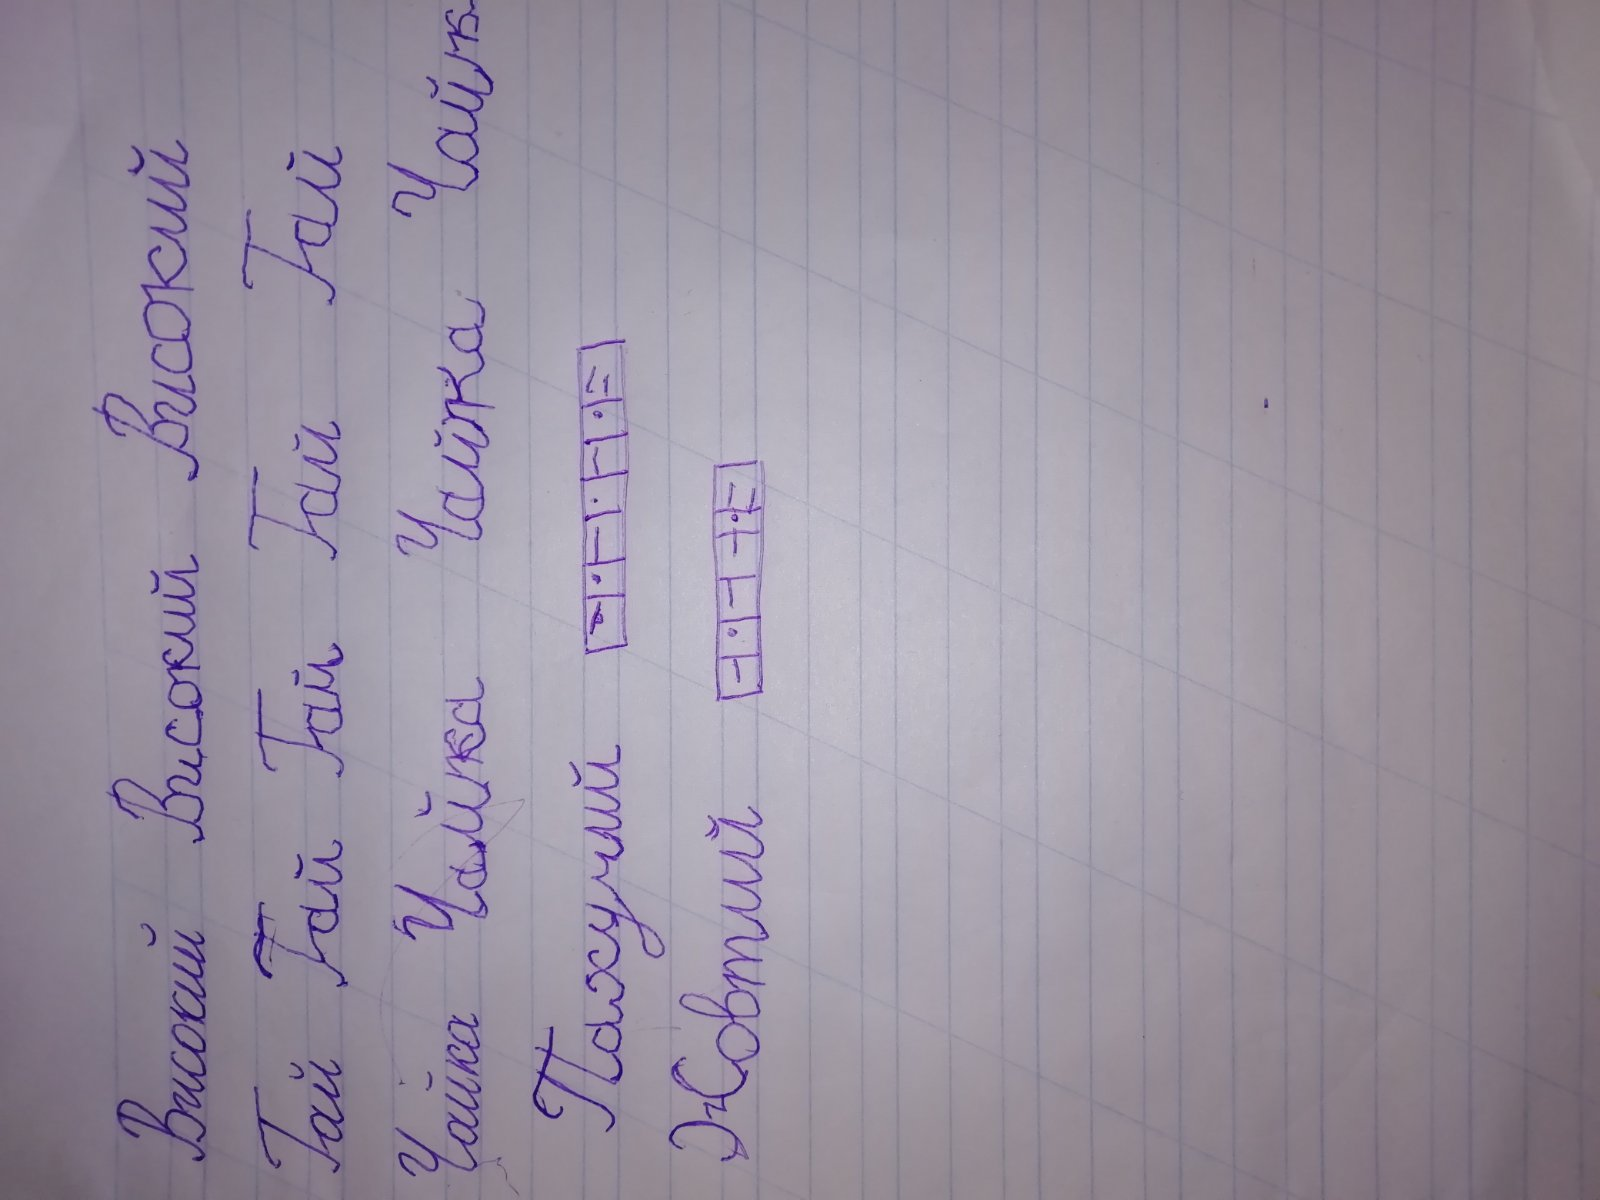 Високий Високий Високий Високий
Гай Гай Гай Гай Гай
Чайка Чайка Чайка Чайк
Пахучий
Жовтий